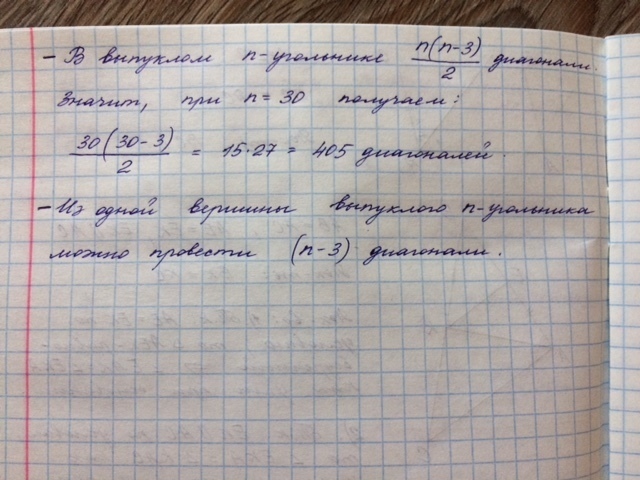 - В выпуклом n-угольнике n(n-3)/2 диагонали.
Значит, при n = 30 получаем:
30(30-3)/2 = 15·27 = 405 диагоналей.
- Из одной вершины выпуклого n-угольника
можно провести (n-3) диагонали.